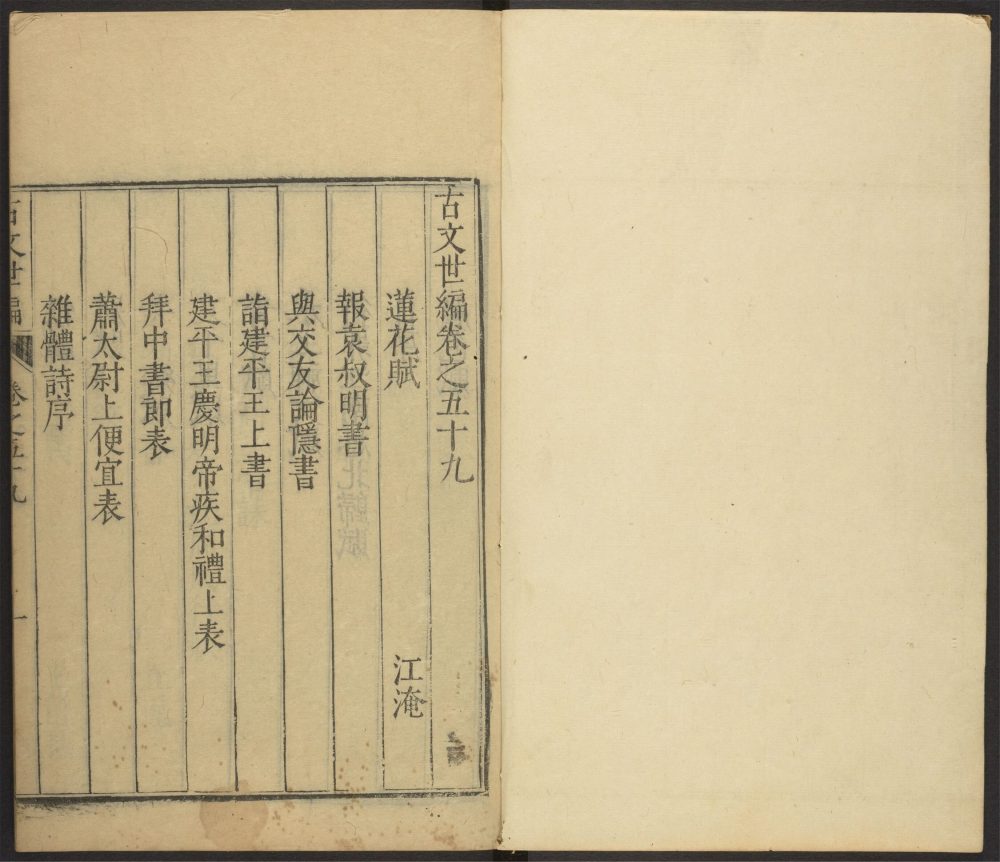 古文世編卷之五十九
蓮花賦 江淹
報袁叔明書
與交友論隱書
詣建平王上書
建平王慶明帝疾和禮上表
拜中書郎表
蕭太尉上便宜表
雜體詩序
古文世編 卷之五十九 一